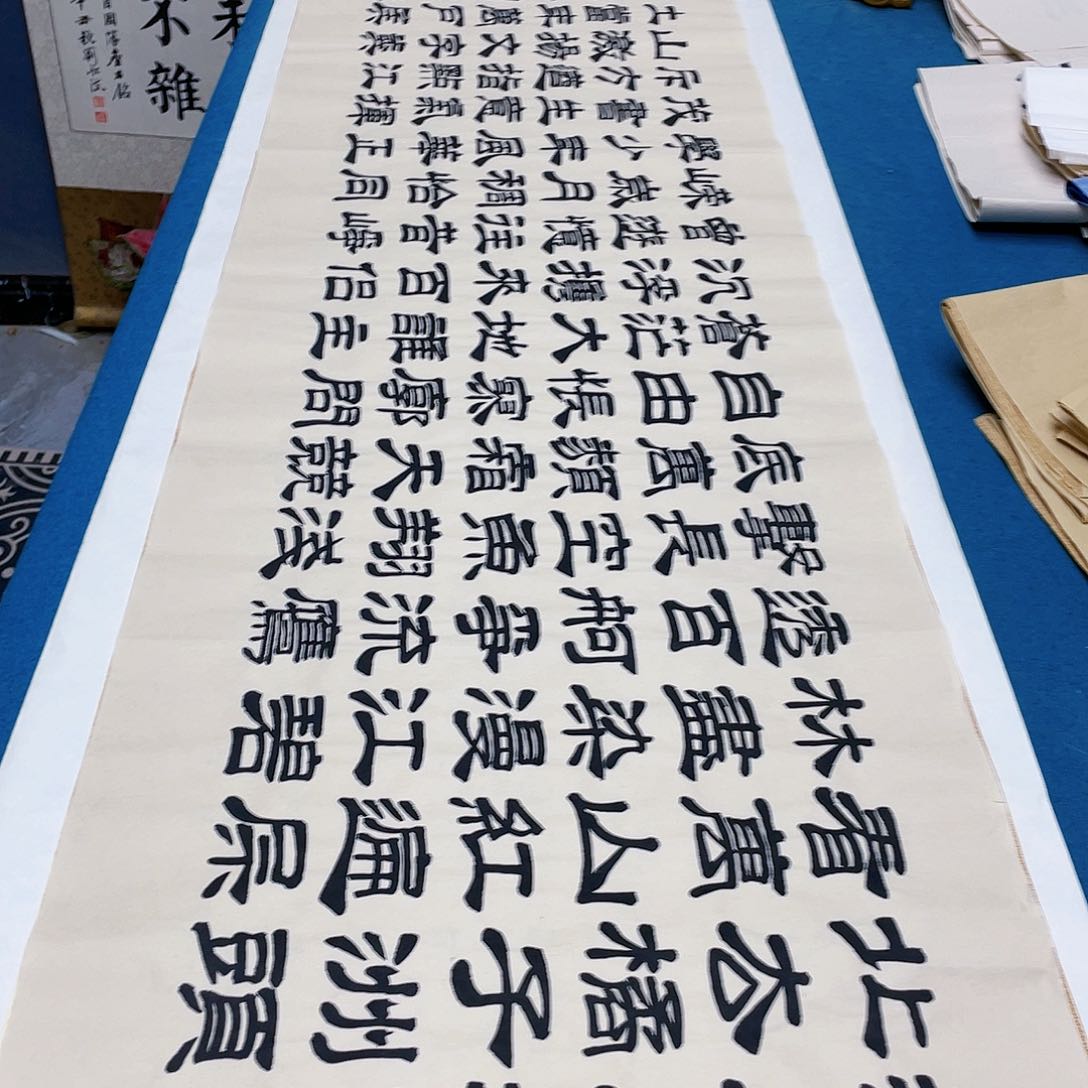 北去橘子洲頭
看萬山紅遍層
林盡染漫江碧
透百舸爭流鷹
擊長空魚翔淺
底萬類霜天競
自由悵寥廓問
蒼茫大地誰主
沉浮攜來百侶
曾遊憶往昔崢
嶸歲月稠恰同
學少年風華正
茂書生意氣揮
斥方遒指點江
山激揚文字糞
土當年萬戶侯
不雜